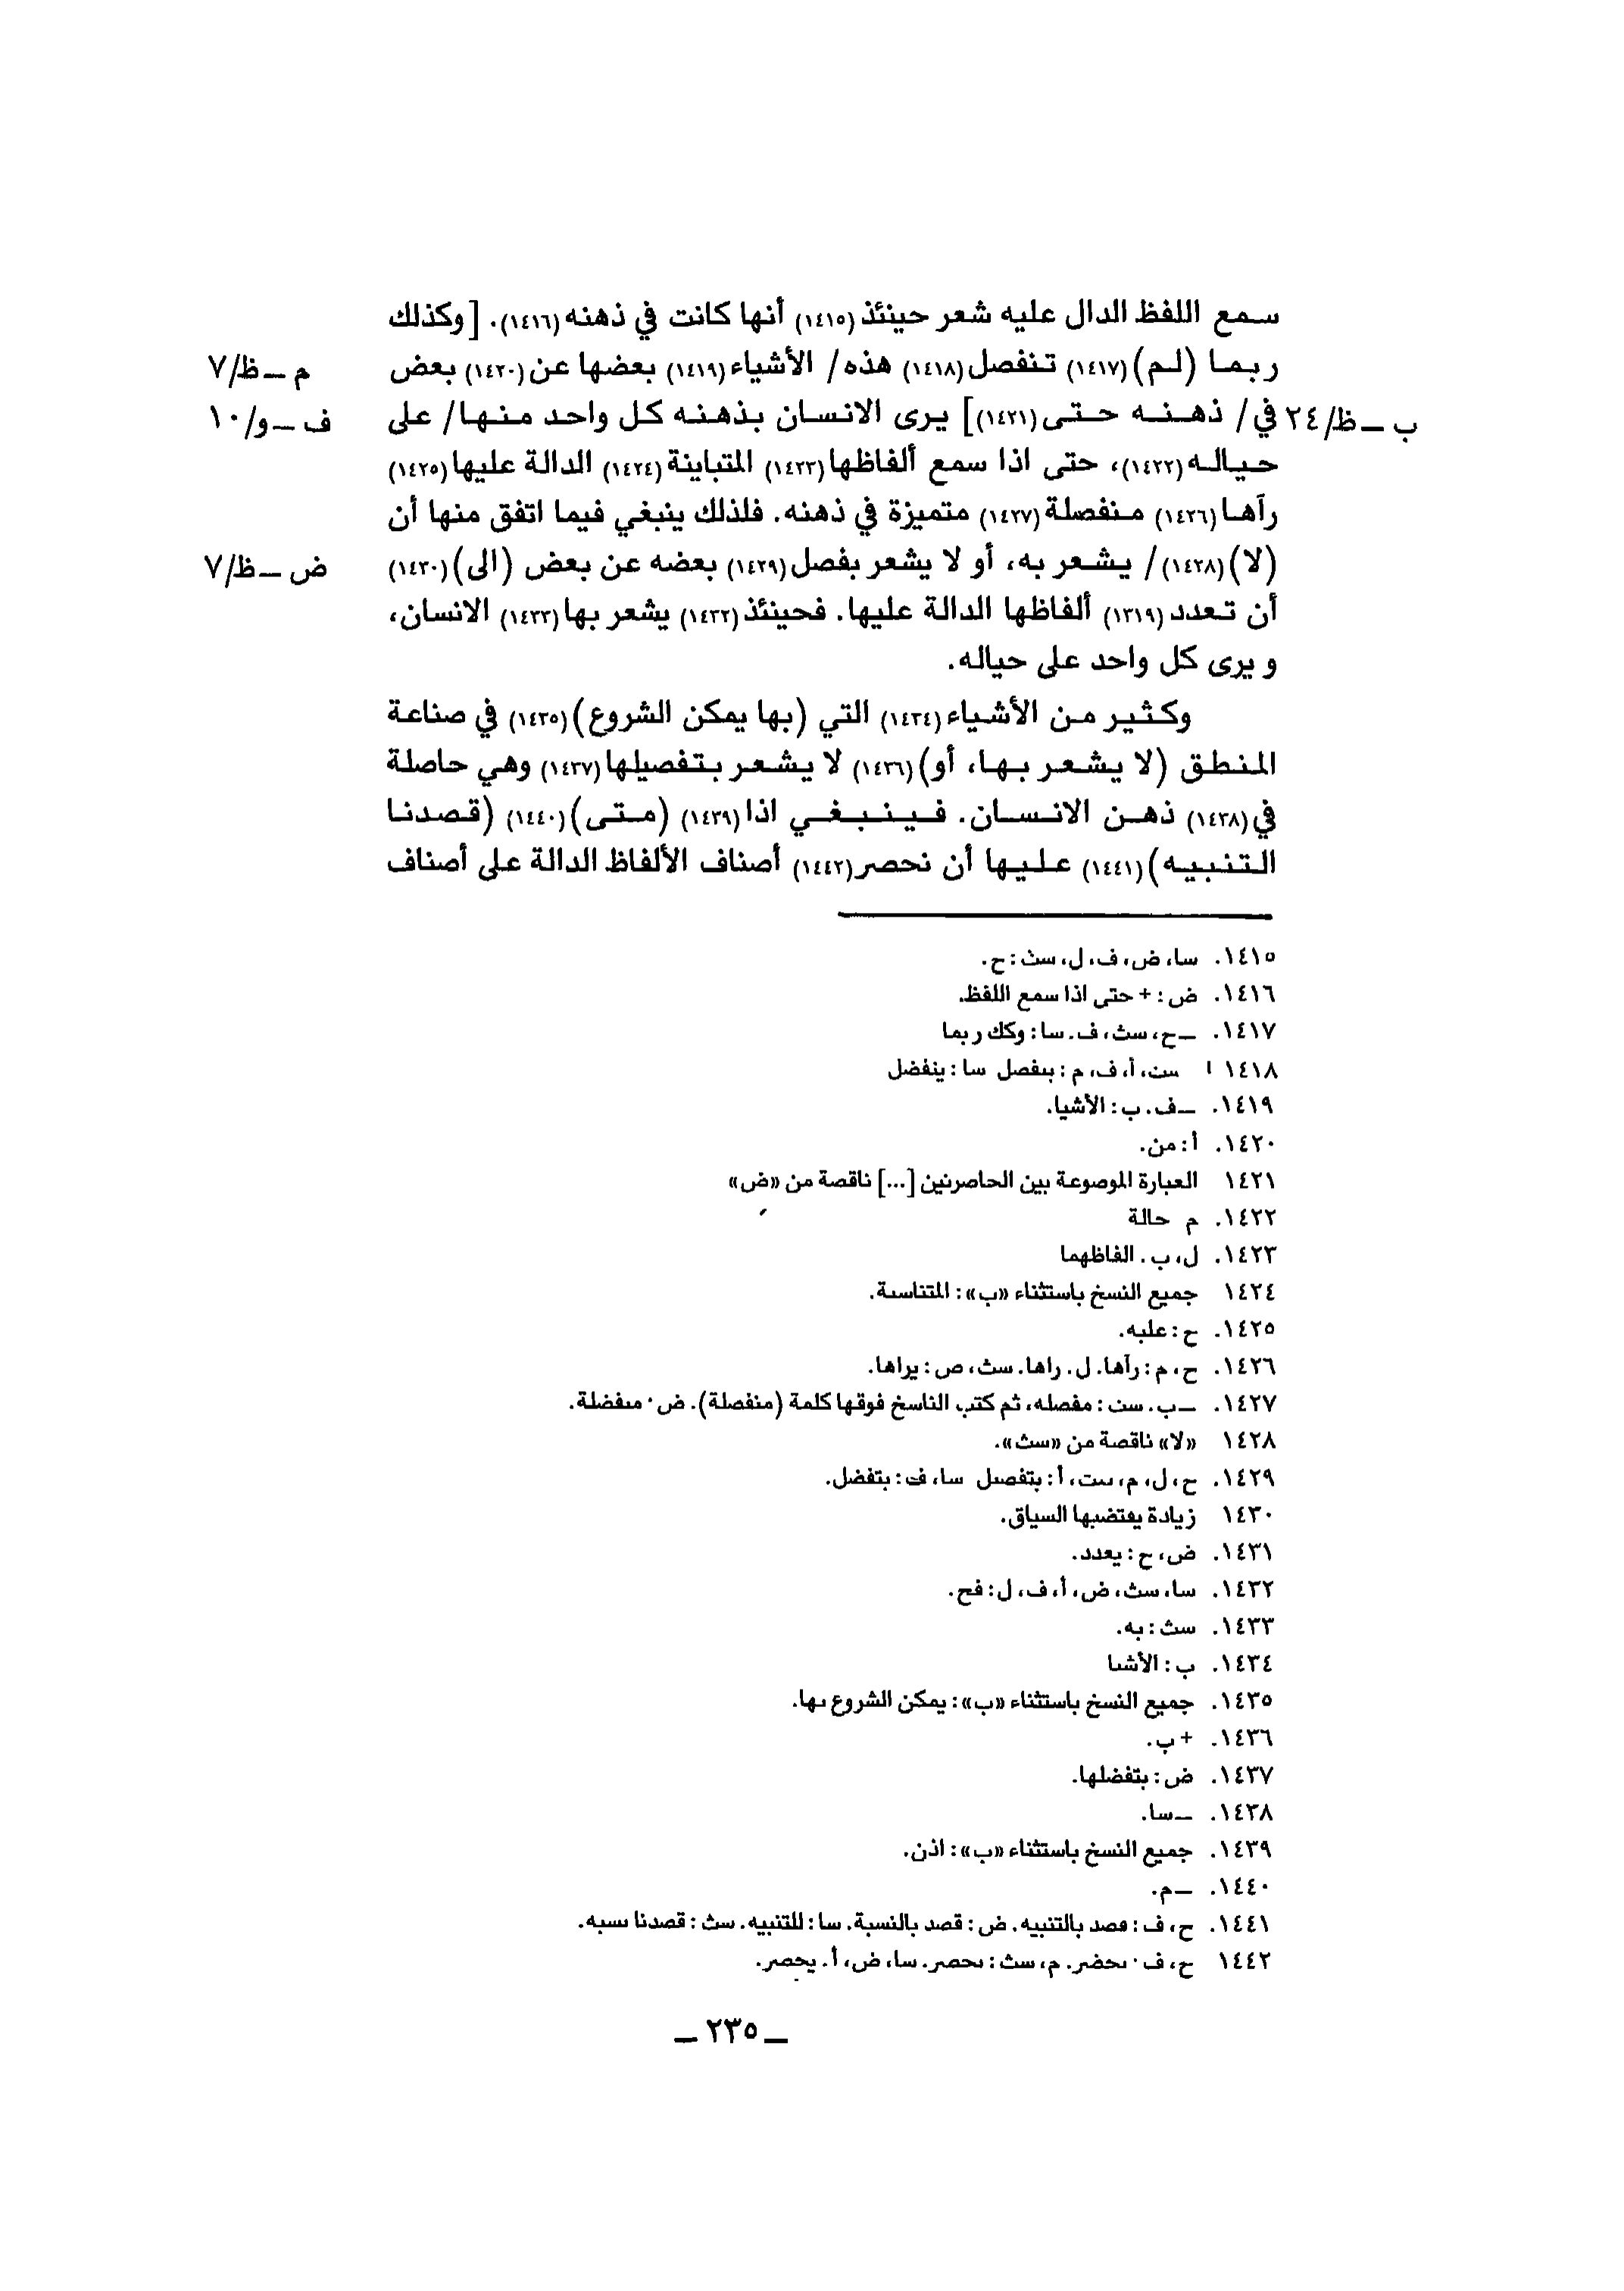 سمع اللفظ الدال عليه شعر حينئذ (١٤١٥) أنها كانت في ذهنه (١٤١٦). [وكذلك
ربما (لم) (١٤١٧) تنفصل (١٤١٨) هذه/ الأشياء (١٤١٩) بعضها عن (١٤٢٠) بعض
م ــ ظ/٧
ب ــ ظ/٢٤
في/ ذهنه حتى (١٤٢١)] يرى الانسان بذهنه كل واحد منها/ على
ف ــ و/١٠
حياله (١٤٢٢)، حتى اذا سمع ألفاظها (١٤٢٣) المتباينة (١٤٢٤) الدالة عليها (١٤٢٥)
رآها (١٤٢٦) منفصلة (١٤٢٧) متميزة في ذهنه. فلذلك ينبغي فيما اتفق منها أن
(لا) (١٤٢٨)/ يشعر به، أو لا يشعر بفصل (١٤٢٩) بعضه عن بعض (الى) (١٤٣٠)
ض ــ ظ/٧
أن تعدد (١٣١٩) ألفاظها الدالة عليها. فحينئذ (١٤٣٢) يشعر بها (١٤٣٣) الانسان،
ويرى كل واحد على حياله.
وكثير من الأشياء (١٤٣٤) التي (بها يمكن الشروع) (١٤٣٥) في صناعة
المنطق (لا يشعر بها، أو) (١٤٣٦) لا يشعر بتفصيلها (١٤٣٧) وهي حاصلة
في (١٤٣٨) ذهن الانسان. فينبغي اذا (١٤٣٩) (متى) (١٤٤٠) (قصدنا
التنبيه) (١٤٤١) عليها أن نحصر (١٤٤٢) أصناف الألفاظ الدالة على أصناف
١٤١٥. سا، ض، ف، ل، سث: ح.
١٤١٦. ض: + حتى اذا سمع اللفظ.
١٤١٧. ــ ح، سث، ف. سا: وكك ربما
١٤١٨ سث، أ، ف، م: ينفصل سا: ينفضل
١٤١٩. ــ ف. ب: الأشيا.
١٤٢٠. أ: من.
١٤٢١ العبارة الموصوعة بين الحاصرتين [...] ناقصة من «ض»
١٤٢٢. م حالة
١٤٢٣. ل، ب. الفاظهما
١٤٢٤ جميع النسخ باستثناء «ب»: المتناسبة.
١٤٢٥. ح: عليه.
١٤٢٦. ح، م: رآها. ل. راها. سث، ص: يراها.
١٤٢٧. ــ ب. سث: مفصله، ثم كتب الناسخ فوقها كلمة (منفصلة). ض٠ منفضلة.
١٤٢٨ «لا» ناقصة من «سث».
١٤٢٩. ح، ل، م، سث، أ: بتفصيل سا، ف: بتفضل.
١٤٣٠ زيادة يقتضيها السياق.
١٤٣١. ض، ح: يعدد.
١٤٣٢. سا، سث، ض، أ، ف، ل: فح.
١٤٣٣. سث: به.
١٤٣٤. ب: الأشيا
١٤٣٥. جميع النسخ باستثناء «ب»: يمكن الشروع بها.
١٤٣٦. + ب.
١٤٣٧. ض: بتفضلها.
١٤٣٨. ــ سا.
١٤٣٩. جميع النسخ باستثناء «ب»: اذن.
١٤٤٠. ــ م.
١٤٤١. ح، ف: قصد بالتنبيه. ض: قصد بالنسبة. سا: للتنبيه. سث: قصدنا بسبه.
١٤٤٢ ح، ف٠ نحضر. م، سث: نحصر. سا، ض، أ. يحصر.
ــ ٢٣٥ ــ